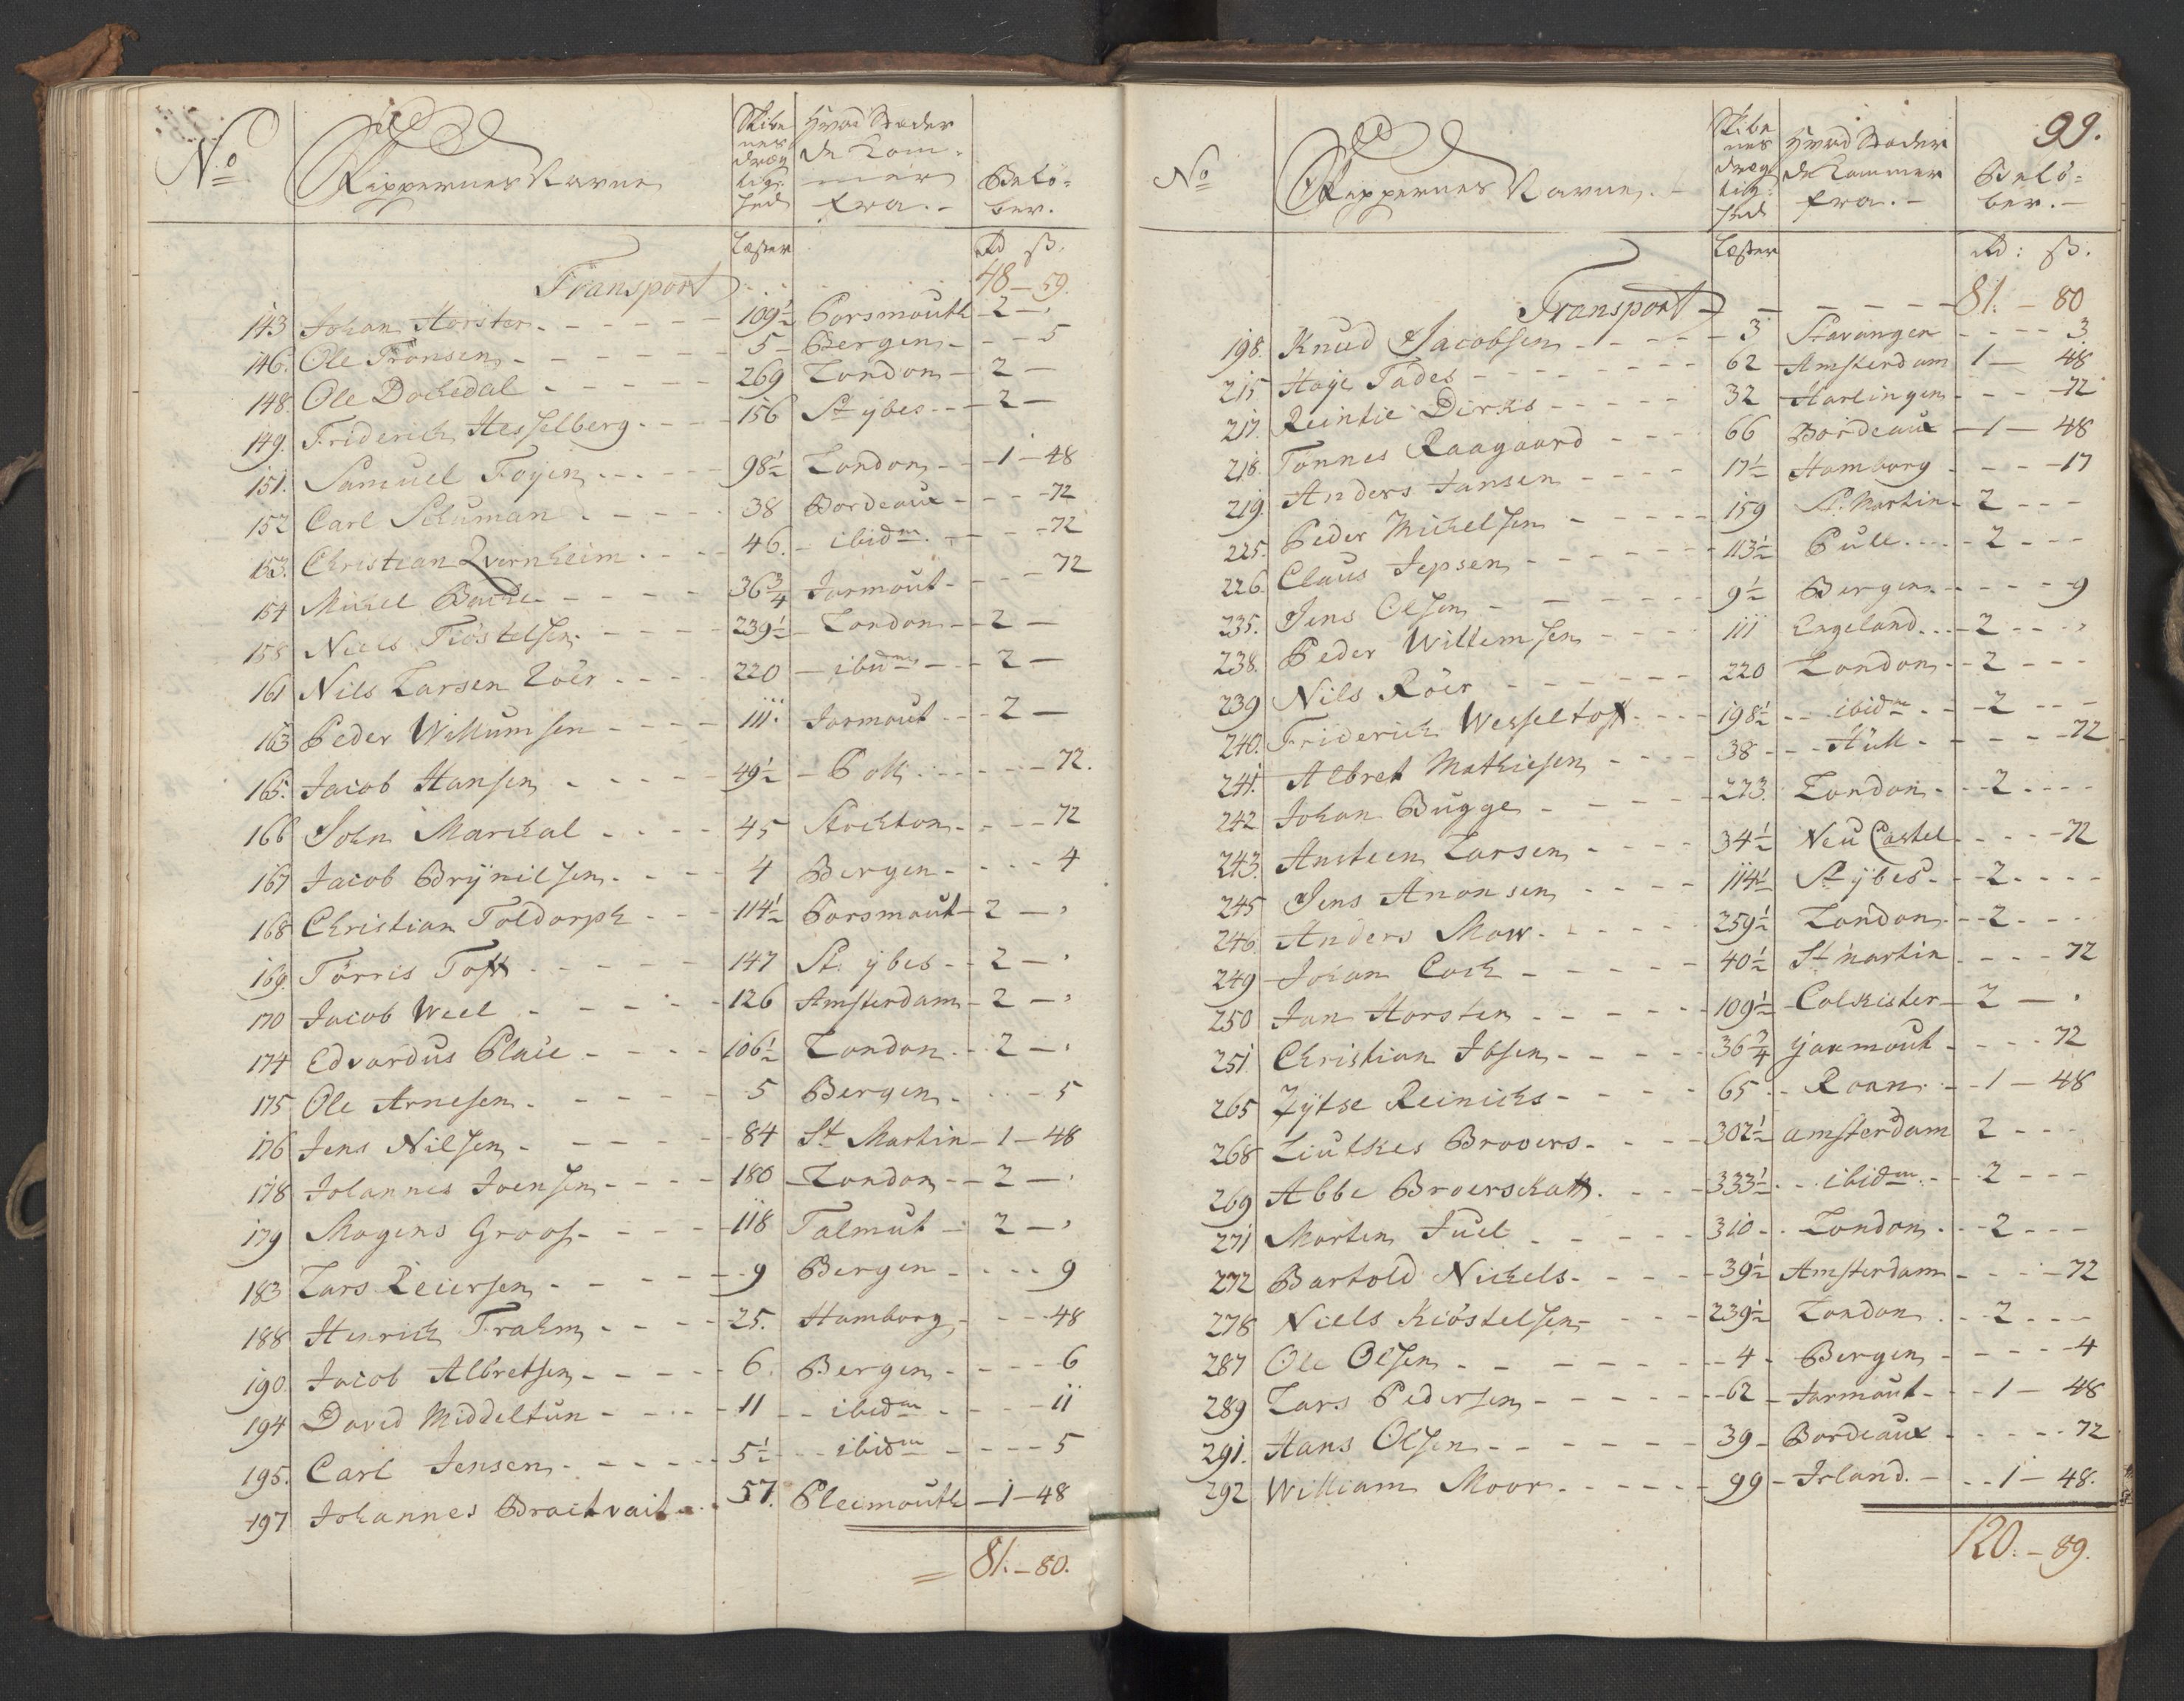 No Skippernes Navne Skibenes Drægtighed Hvad Stæder de kommer fra.- Beløber.
Læster Rd ß.
Transport 48 - 59.
143 Johan Horster 109½ Porsmouth 2 -
146. Ole Tronsen 5 Bergen 5
148. Ole Dokedal 269 London 2 -
149. Friderich Hesselberg 156 St ÿbes 2 -
151. Samuel Foyen 98½ London 1 - 48
152 Carl Schuman 38 Bordeaux 72
153. Christian Qvernheim 46. ibidm 72
154 Mickel Backe 36¾ Jarmout 72
158 Niels Kiöstelsen 239½ London 2 -
161 Nils Larsen Röer 220 ibidm 2 -
163 Peder Willumsen 111. Jarmout 2 -
165. Jacob Hansen 49½ Poll 72.
166 John Markal 45 Stockton 72
167 Jacob Brÿnilsen 4 Bergen 4
168 Christian Toldorph 114½ Porsmout 2 -
169. Törris Toft 147 St. ybes 2 -
170 Jacob Weel 126 Amsterdam 2 -
174 Edvardus Plaie 106½ London 2 -
175 Ole Arnesen 5 Bergen 5
176 Jens Nilsen 84 St Martin 1 - 48
178 Johannes Joensen 180 London 2 -
179 Mogens Graas 118 Falmut 2 -
183 Lars Reiersen 9 Bergen 9
188 Henrich Frahm 25. Hamborg 48
190 Jacob Albretsen 6. Bergen 6
194 David Middeltun 11 ibidm 11
195. Carl Jensen 5½ ibidm 5
197 Johannes Braitvait 57. Pleimouth 1 - 48
= 81. - 80.
99.
No Skippernes Navne.- Skibenes Drægtighed Hvad Stæder de kommer fra.- Beløber.-
Læster Rd: ß.
Transport 81. - 80
198. Knud Jacobsen 3 Stavanger 3.
215 Haye Tades 62 Amsterdam 1 - 48
217. Reintie Dirks 32 Harlingen 72
218. Tönnes Raagaard 66 Bordeaux 1 - 48
219. Anders Jansen 17½ Hamborg 17
225. Peder Mickelsen 159 St. Martin 2
226. Claus Jepsen 113½ Pull 2
235. Jens Olsen 9½ Bergen 9
238. Peder Willemsen 111 Engeland 2
239 Nils Röer 220 London 2
240. Friderich Wesseltoft 198½ ibidm 2
241. Albret Mathiesen 38 Hull 72
242 Johan Bugge 273. London 2
243. Ansteen Larsen 34½ Neu Castel 72
245 Jens Anonsen 114½ St ÿbes 2
246. Anders Mow 259½ London 2
249 Johan Cock 40½ St Martin 72
250 Jan Horsten 109½ Colkister 2 -
251 Christian Ibsen 36¾ yarmout 72
265 Zÿtse Reinicks 65 Roan 1 - 48
268 Liutkes Brooers 302½ amsterdam 2
269 Abbe Broerskatt 333½ ibidm 2
271 Morten Juel 310 London 2
272 Bartold Nickels 39½ Amsterdam 72
278 Niels Kiöstelsen 239½ London 2
287 Ole Olsen 4 Bergen 4
289 Lars Pedersen 62 Jarmout 1 - 48
291. Hans Olsen 39 Bordeaux 72
292 William Moor 99 Irland. 1 - 48.
120. - 89.